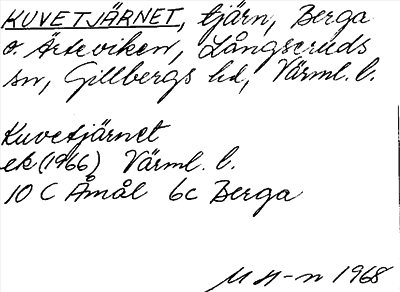 KUVETJÄRNET, tjärn, Berga
o. Ärteviken, Långseruds
sn, Gillbergs hd, Värml. l.
Kuvetjärnet
ek (1966) Värml. l.
10 C Åmål 6c Berga
1968